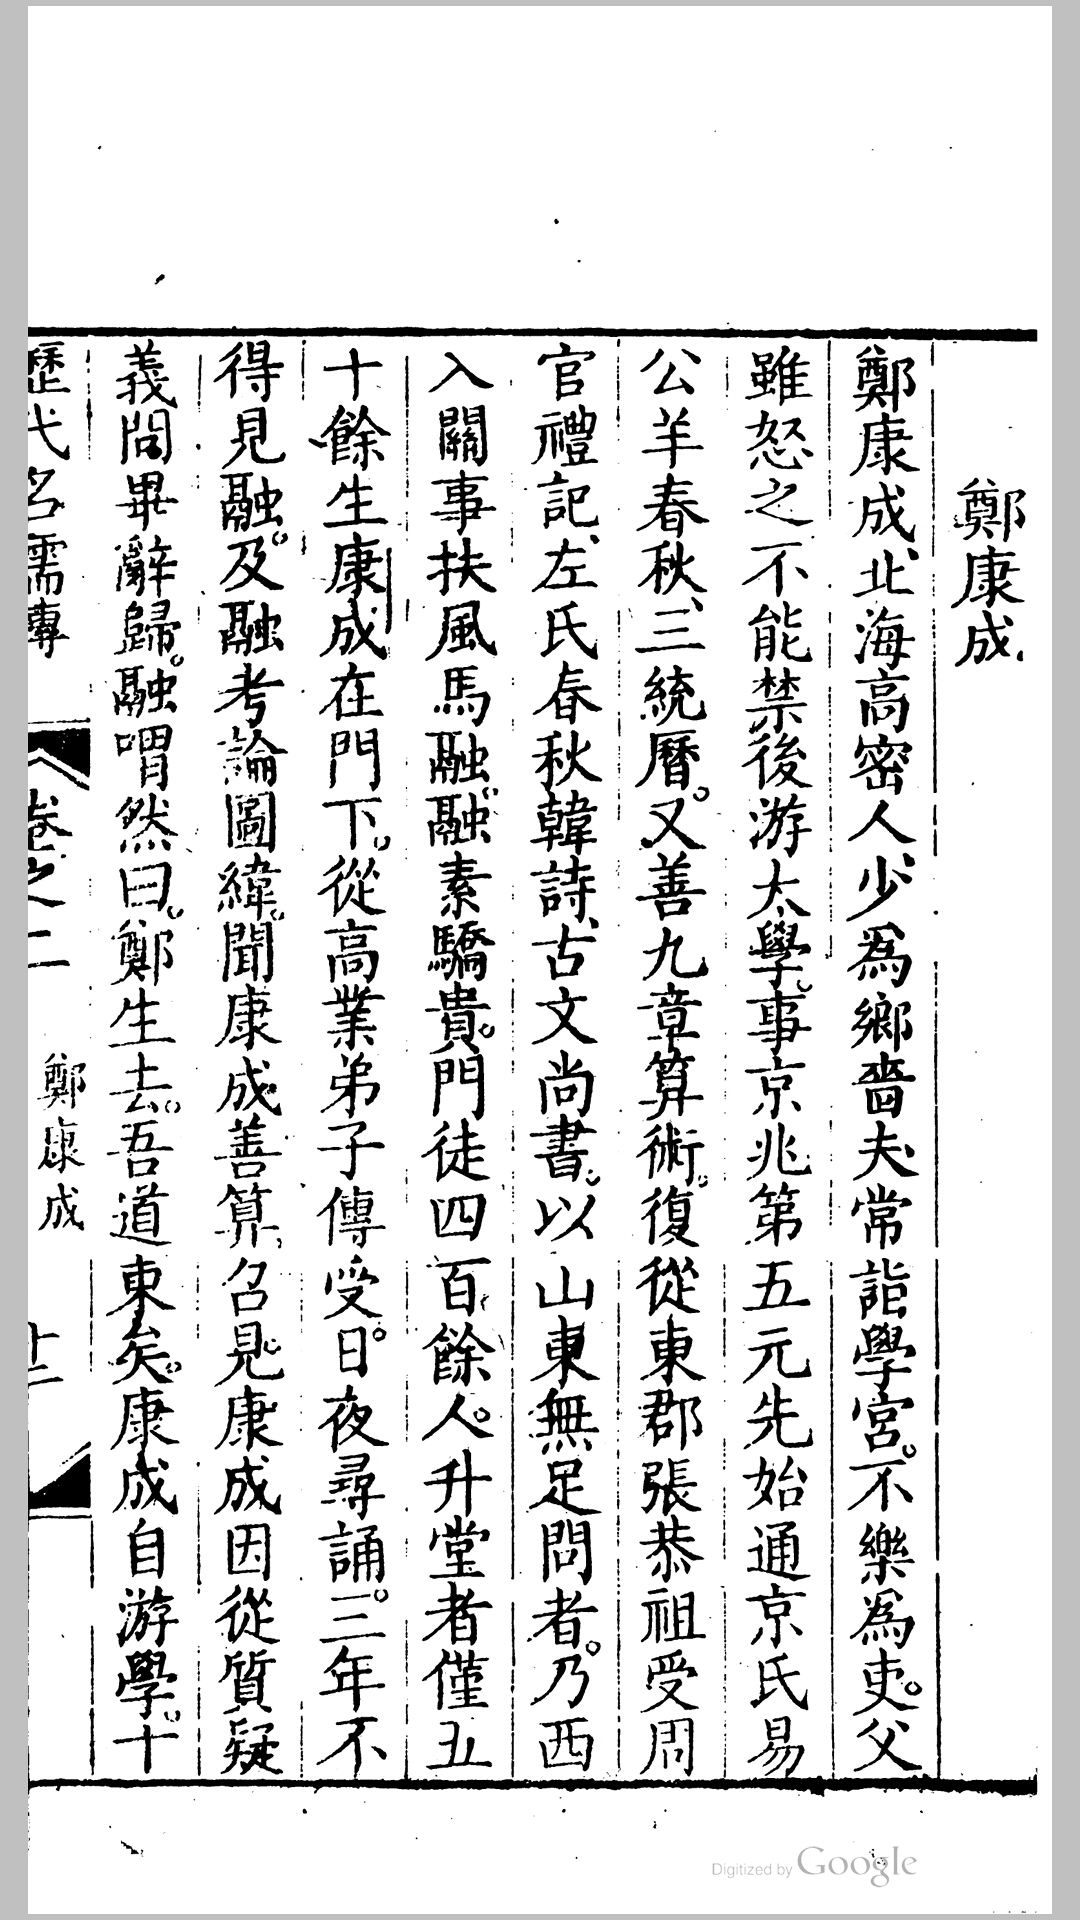 鄭康成
鄭康成、北海高密人少爲鄉嗇夫常詣學宮。不樂爲吏。父
雖怒之不能禁後游太學。事京兆第五元先始通京氏易
公羊春秋、三統曆。又善九章算術。復從東郡張恭祖受周
官禮記、左氏春秋韓詩、古文尚書。以山東無足問者。乃西
入關事扶風馬融。融素驕貴。門徒四百餘人。升堂者僅五
十餘生康成在門下。從高業弟子傳受。日夜尋誦。三年不
得見融。及融考論圖緯。聞康成善算、召見。康成因從質疑
義問畢辭歸。融喟然曰。鄭生去。吾道東矣。康成自游學。十
歷代名儒傳 卷之二 鄭康成 十二
Digitized by Google